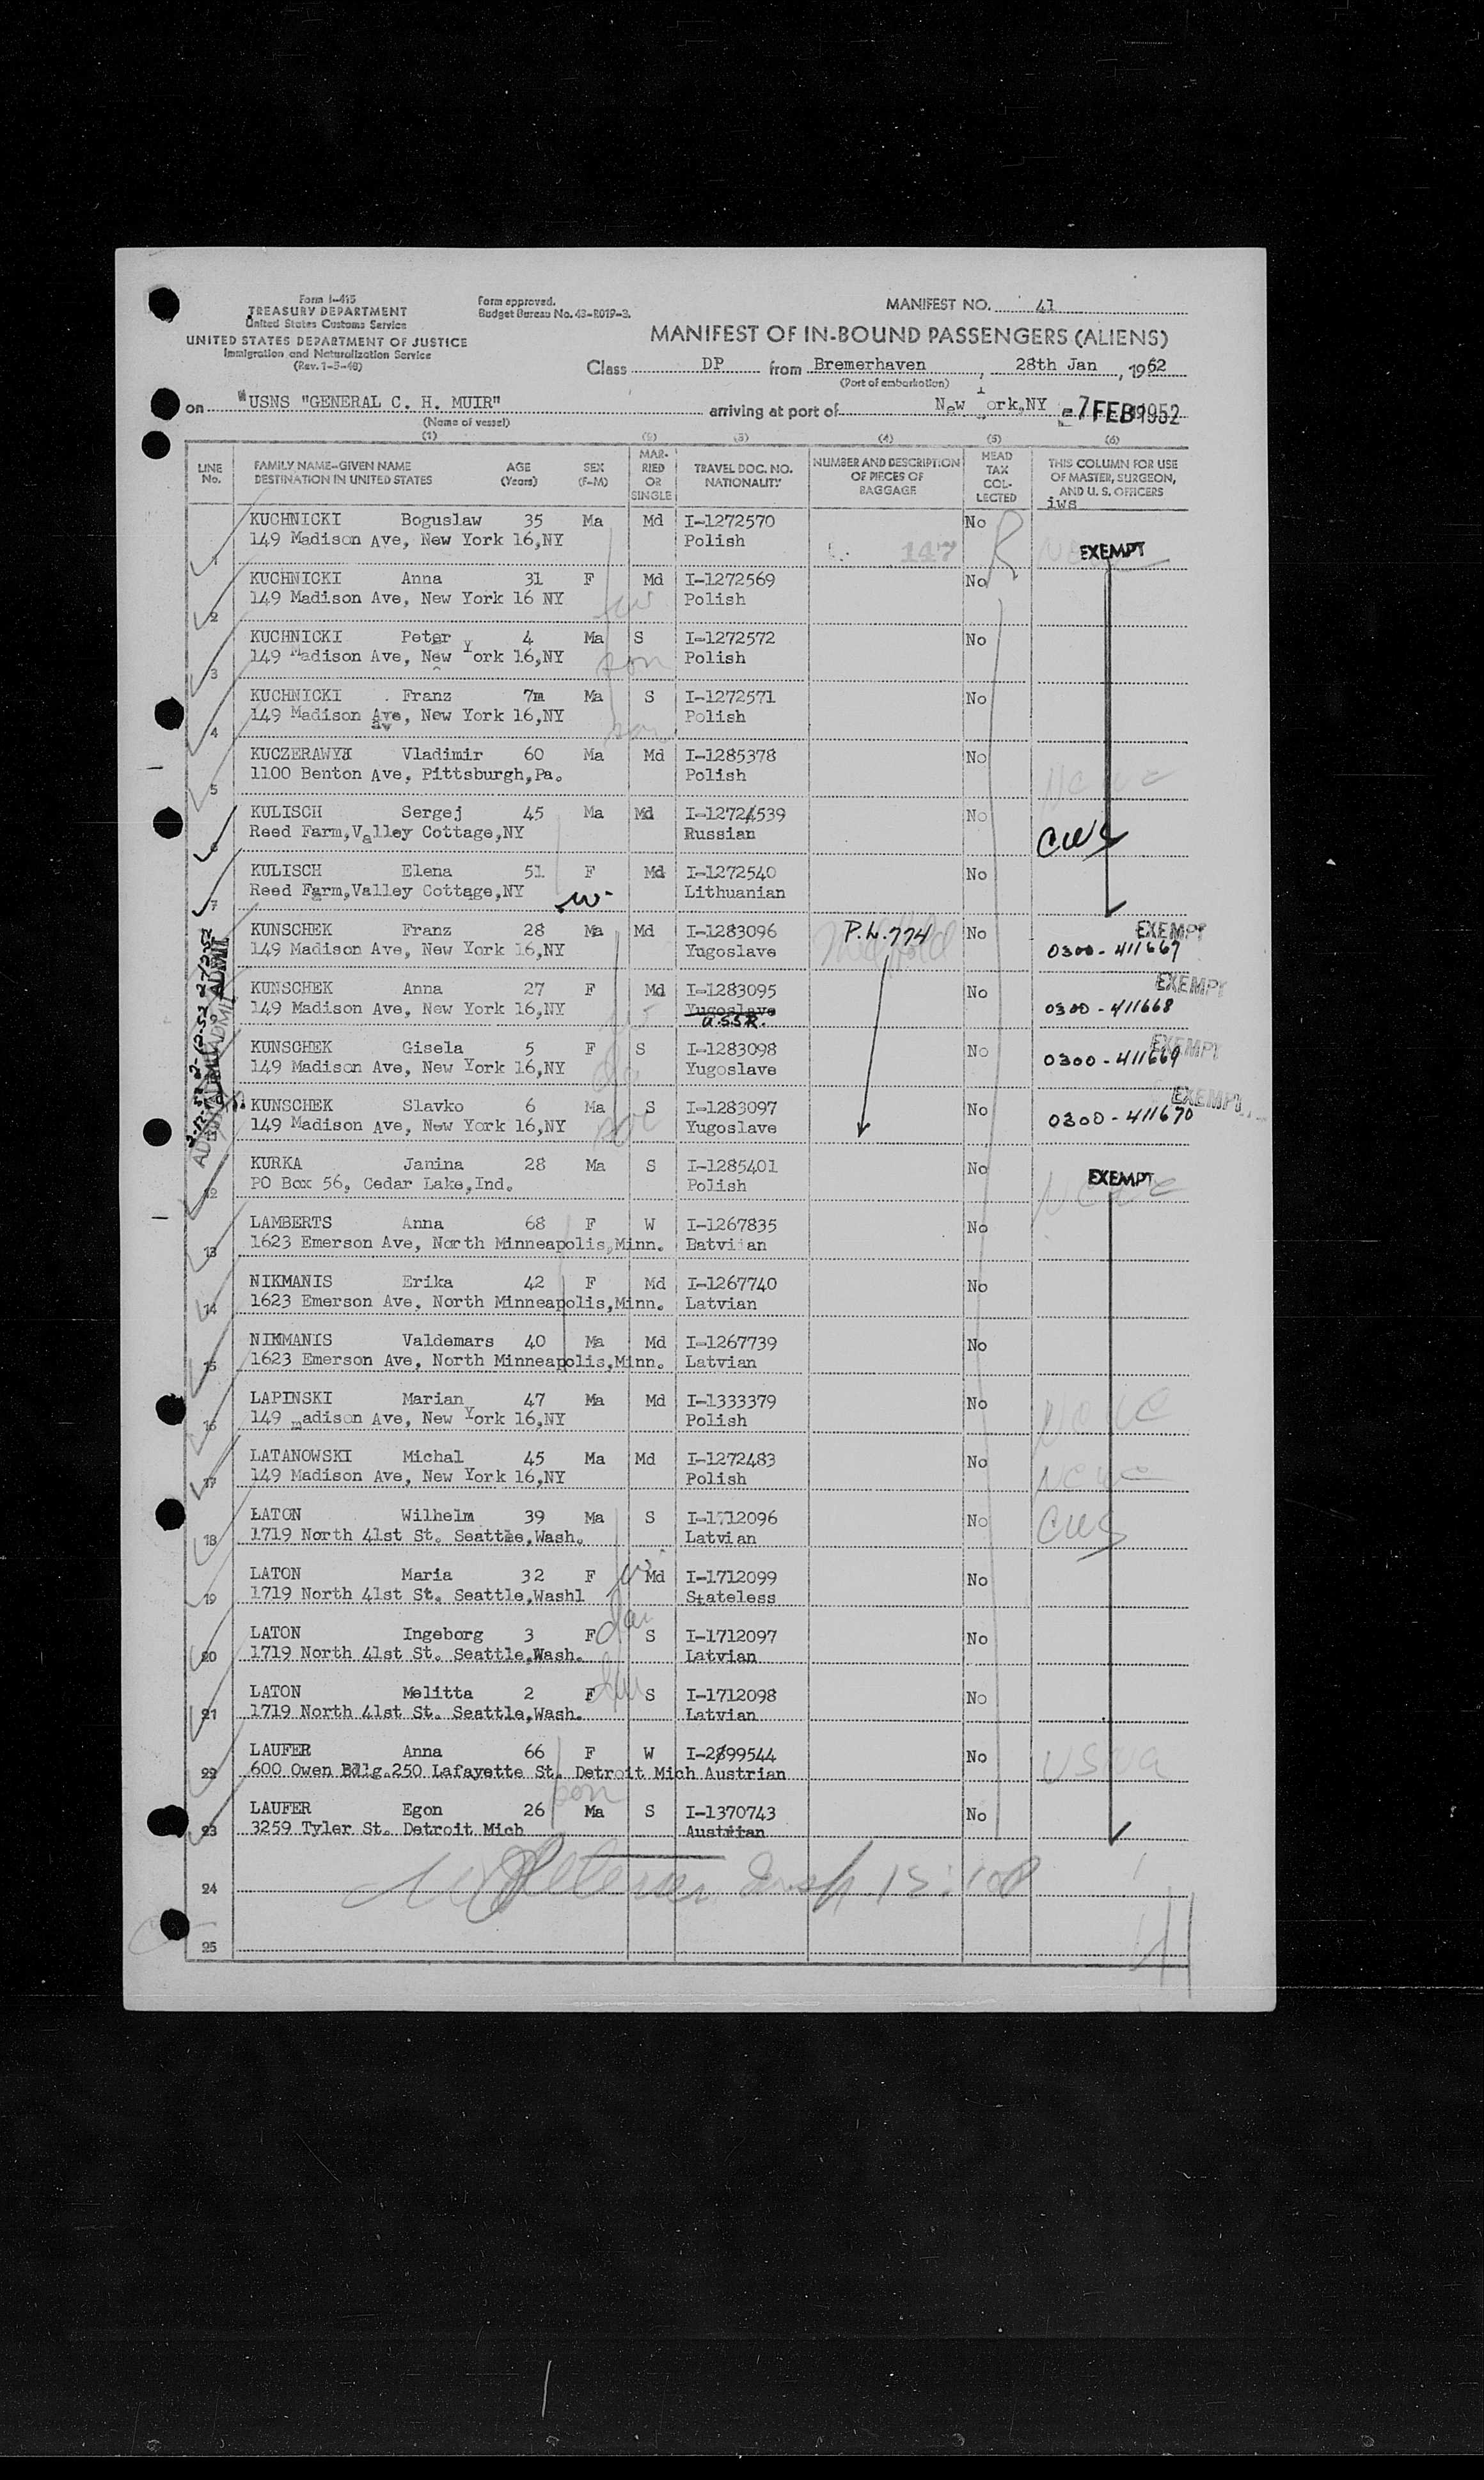 Form I-415
TREASURY DEPARTMENT
United States Customs Service
UNITED STATES DEPARTMENT OF JUSTICE
Immigration and Naturalization Service
(Rev. 1-5-48)
Form approved.
Budget Bureau No. 43-R019-3.
MANIFEST NO. 41
MANIFEST OF IN-BOUND PASSENGERS (ALIENS)
Class DP from Bremerhaven, 28th Jan, 1952
(Port of embarkation)
on USNS "GENERAL C. H. MUIR" arriving at port of New York,NY 7 FEB 1952
(Name of vessel)
(1) (2) (3) (4) (5) (6)
LINE No. FAMILY NAME-GIVEN NAME DESTINATION IN UNITED STATES AGE (Years) SEX (F-M) MARRIED OR SINGLE TRAVEL DOC. NO. NATIONALITY NUMBER AND DESCRIPTION OF PIECES OF BAGGAGE HEAD TAX COLLECTED THIS COLUMN FOR USE OF MASTER, SURGEON, AND U. S. OFFICERS
iws
KUCHNICKI Boguslaw 35 Ma Md I-1272570 No
1 149 Madison Ave, New York 16,NY Polish 147 EXEMPT
KUCHNICKI Anna 31 F Md I-1272569 No
2 149 Madison Ave, New York 16 NY Polish
KUCHNICKI Peter 4 Ma S I-1272572 No
3 149 Madison Ave, New York 16,NY son Polish
KUCHNICKI Franz 7m Ma S I-1272571 No
4 149 Madison Ave, New York 16,NY son Polish
KUCZERAWYJ Vladimir 60 Ma Md I-1285378 No
5 1100 Benton Ave, Pittsburgh,Pa. Polish
KULISCH Sergej 45 Ma Md I-1272539 No
6 Reed Farm,Valley Cottage,NY Russian CWS
KULISCH Elena 51 F Md I-1272540 No
7 Reed Farm,Valley Cottage,NY w Lithuanian
KUNSCHEK Franz 28 Ma Md I-1283096 P.L.774 No EXEMPT
149 Madison Ave, New York 16,NY Yugoslave 0300-411667
KUNSCHEK Anna 27 F Md I-1283095 No EXEMPT
149 Madison Ave, New York 16,NY Yugoslave 0300-411668
U.S.S.R.
KUNSCHEK Gisela 5 F S I-1283098 No EXEMPT
149 Madison Ave, New York 16,NY Yugoslave 0300-411669
KUNSCHEK Slavko 6 Ma S I-1283097 No EXEMPT
149 Madison Ave, New York 16,NY Yugoslave 0300-411670
KURKA Janina 28 Ma S I-1285401 No EXEMPT
12 PO Box 56, Cedar Lake,Ind. Polish
LAMBERTS Anna 68 F W I-1267835 No
13 1623 Emerson Ave, North Minneapolis,Minn. Batvian
NIKMANIS Erika 42 F Md I-1267740 No
14 1623 Emerson Ave, North Minneapolis,Minn. Latvian
NIKMANIS Valdemars 40 Ma Md I-1267739 No
15 1623 Emerson Ave, North Minneapolis,Minn. Latvian
LAPINSKI Marian 47 Ma Md I-1333379 No
16 149 madison Ave, New York 16,NY Polish
LATANOWSKI Michal 45 Ma Md I-1272483 No
17 149 Madison Ave, New York 16,NY Polish
LATON Wilhelm 39 Ma S I-1712096 No CWS
18 1719 North 41st St. Seattle,Wash. Latvian
LATON Maria 32 F Md I-1712099 No
19 1719 North 41st St. Seattle,Washl Stateless
LATON Ingeborg 3 F dau S I-1712097 No
20 1719 North 41st St. Seattle,Wash. Latvian
LATON Melitta 2 F dau S I-1712098 No
21 1719 North 41st St. Seattle,Wash. Latvian
LAUFER Anna 66 F W I-2899544 No USNA
22 600 Owen Bllg.250 Lafayette St. Detroit Mich Austrian
son
LAUFER Egon 26 Ma S I-1370743 No
23 3259 Tyler St. Detroit Mich Austrian
24
25
41